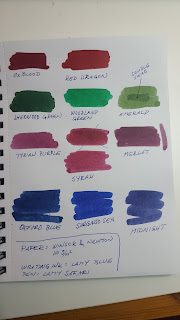 OXBLOOD
RED DRAGON
SHERWOOD GREEN
WOODLAND GREEN
EMERALD
TYRIAN PURPLE
MERLOT
SYRAH
OXFORD BLUE
SARGASSO SEA
MIDNIGHT
PAPER: WINSOR & NEWTON
WRITING INK: LAMY BLUE
PEN: LAMY SAFARI